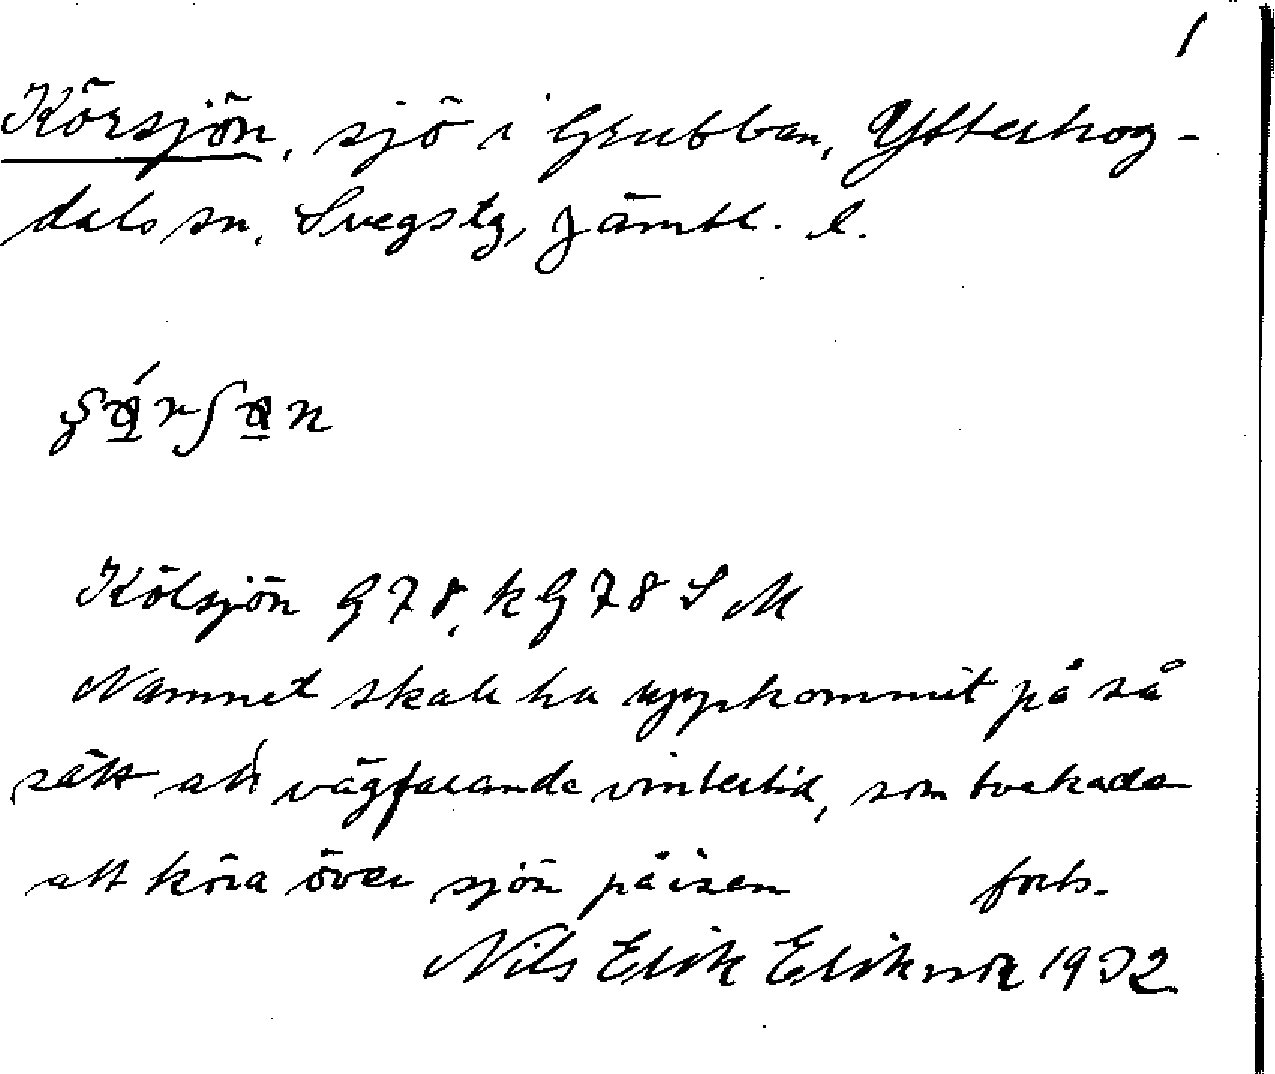 1
Körsjön, sjö i Grubban, Ytterhog-
dals sn. Svegs tg, Jämtl. l.
Kölsjön G78, k G78 S M
Namnet skall ha uppkommit på så
sätt att vägfarande vintertid, som tvekade
att köra över sjön på isen forts.
Nils Erik Eriksson 1932